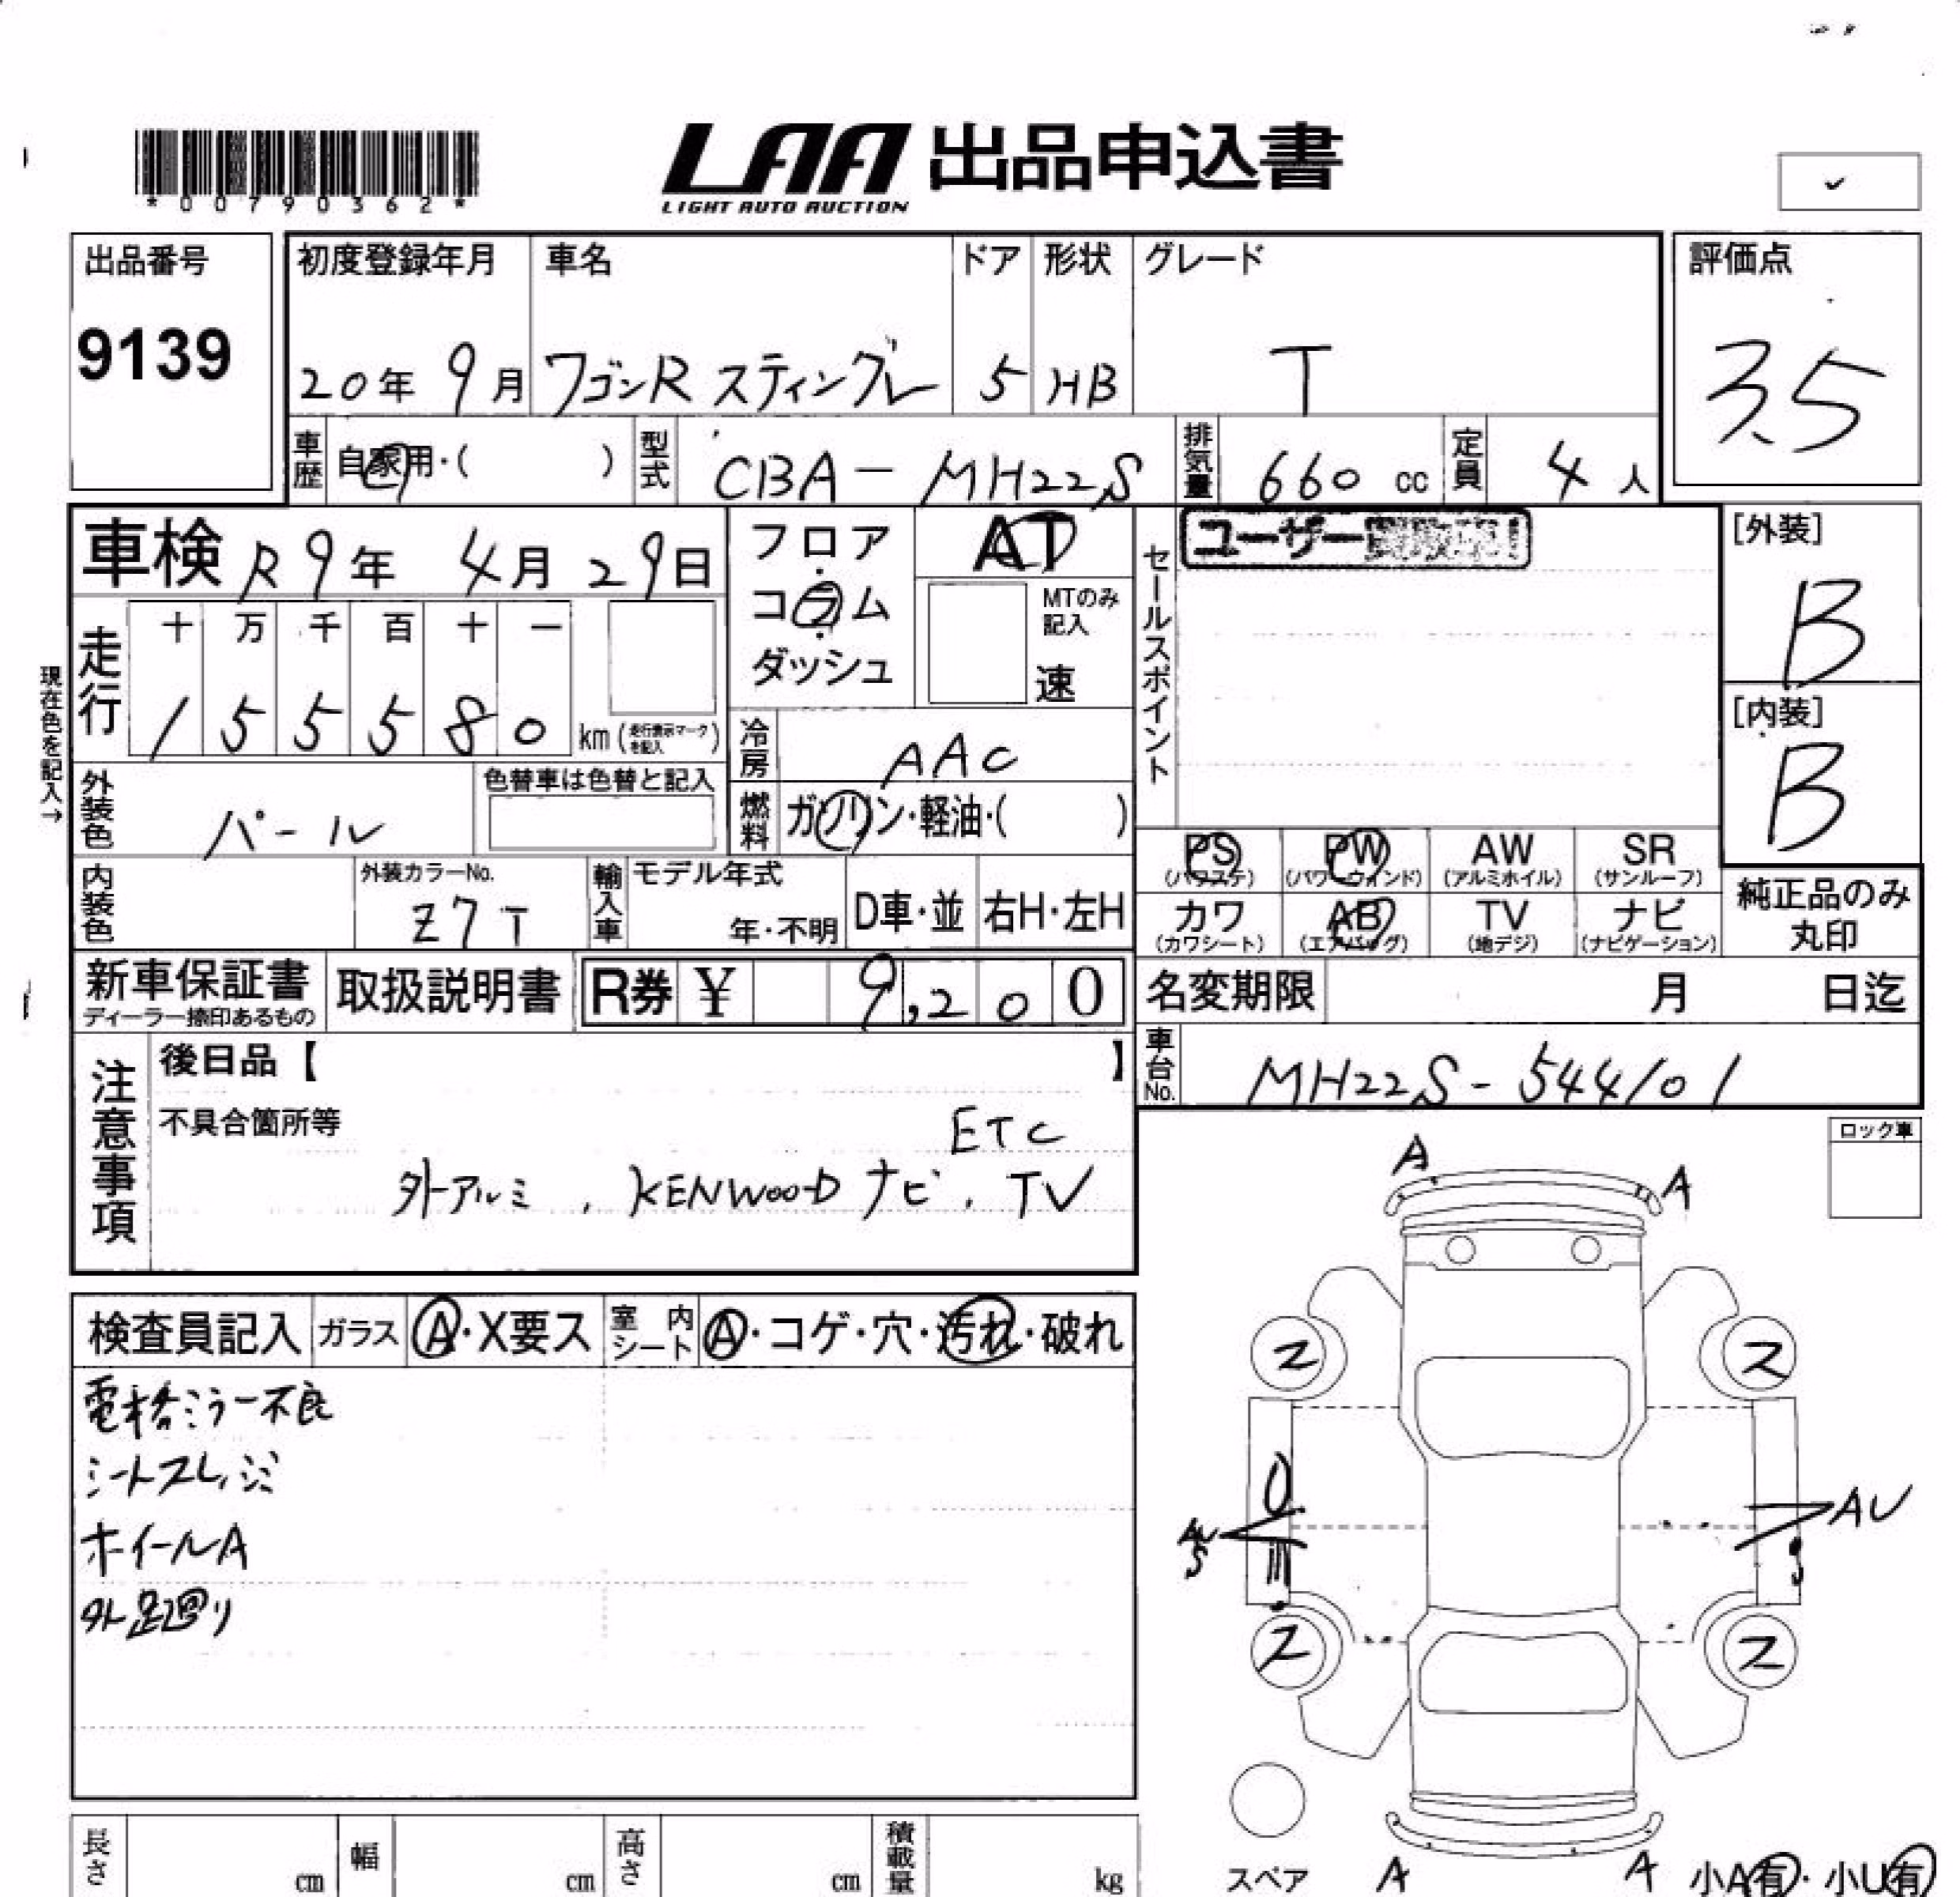 *00790362*
LAA 出品申込書
LIGHT AUTO AUCTION
出品番号
9139
初度登録年月
20年 9月
車名
ワゴンR スティングレー
ドア
5
形状
HB
グレード
T
評価点
3.5
車歴
自家用・( )
型式
CBA-MH22S
排気量
660 cc
定員
4人
車検 R9年 4月 29日
フロア・コラム・ダッシュ
AT
MTのみ記入
速
セールスポイント
ユーザー
[外装]
B
[内装]
B
現在色を記入→
走行
十 万 千 百 十 一
1 5 5 5 8 0 km (走行表示マークを記入)
冷房
AAC
外装色
パール
色替車は色替と記入
燃料
ガソリン・軽油・( )
内装色
外装カラーNo.
Z7T
輸入車
モデル年式
年・不明
D車・並
右H・左H
PS (パワステ)
PW (パワーウィンド)
AW (アルミホイル)
SR (サンルーフ)
カワ (カワシート)
AB (エアバッグ)
TV (地デジ)
ナビ (ナビゲーション)
純正品のみ
丸印
新車保証書
ディーラー捺印あるもの
取扱説明書
R券 ¥ 9,200
名変期限 月 日迄
車台No.
MH22S-544101
注意事項
後日品【 】
不具合箇所等
ETC
外アルミ, KENWOOD ナビ, TV
ロック車
A
A
検査員記入
ガラス
A・X要ス
室内シート
A・コゲ・穴・汚れ・破れ
電格ミラー不良
シートスレ,シミ
ホイールA
外足廻り
ス
ス
AU
S
AU
ス
ス
スペア
A
A
小A有・小U有
長さ cm
幅 cm
高さ cm
積載量 kg